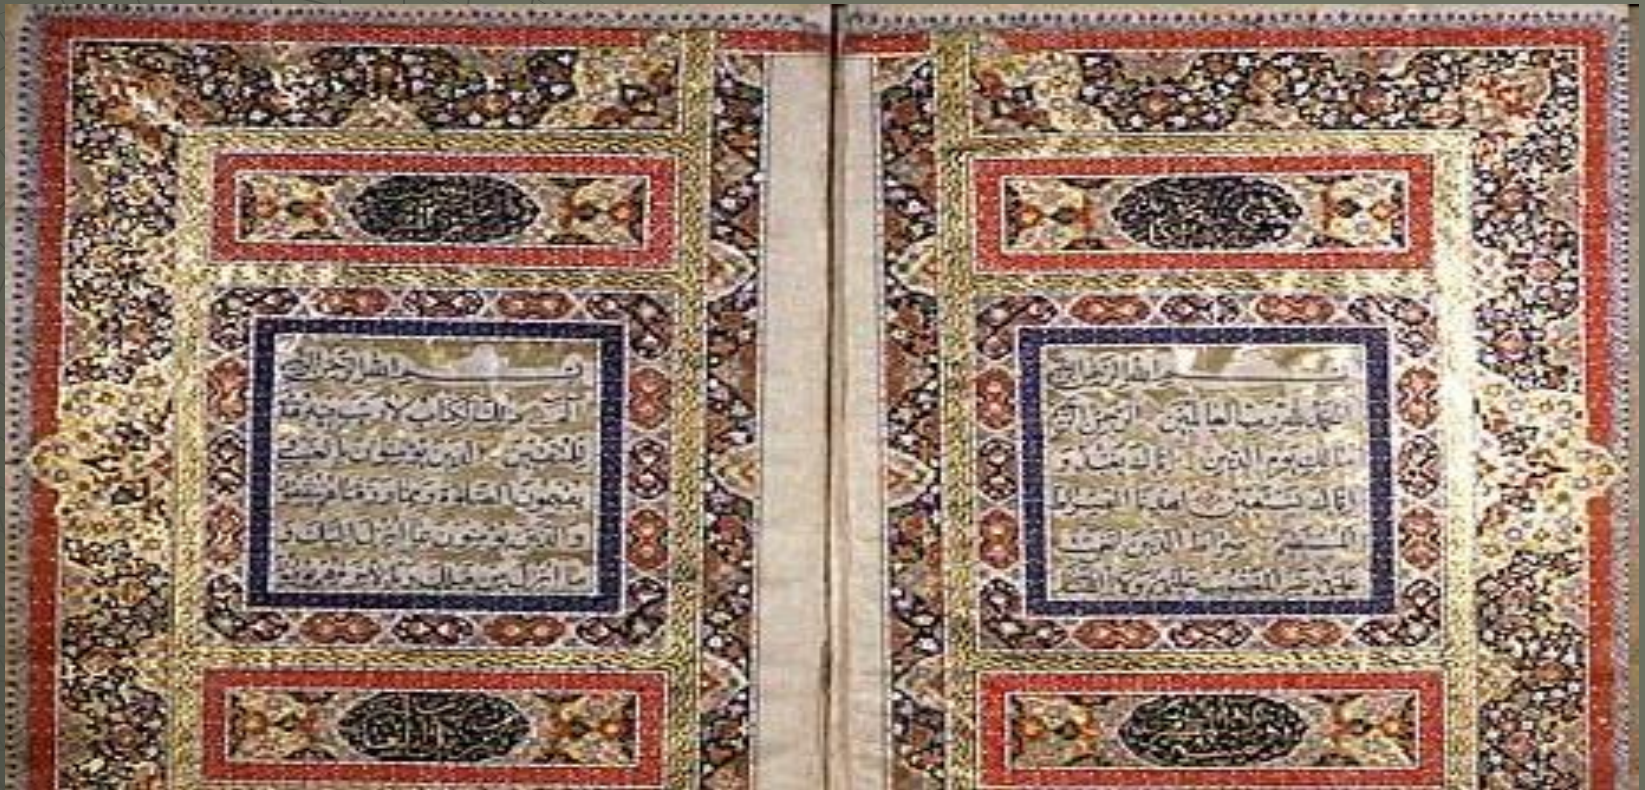 بسم الله الرحمن الرحيم
الحمد لله رب العالمين الرحمن الرحيم
مالك يوم الدين اياك نعبد و
اياك نستعين اهدنا الصراط
المستقيم صراط الذين انعمت
عليهم غير المغضوب عليهم ولا الضالين
بسم الله الرحمن الرحيم
الم ذلك الكتاب لا ريب فيه هدى
للمتقين الذين يؤمنون بالغيب و
يقيمون الصلوة ومما رزقناهم ينفقون
والذين يؤمنون بما انزل اليك و
ما انزل من قبلك وبالاخرة هم يوقنون